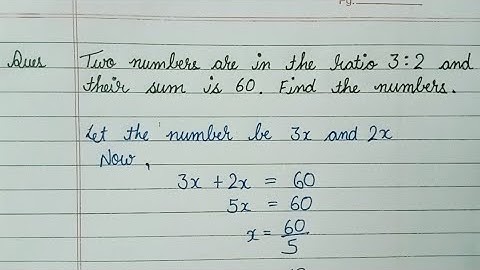 Pg.
Ques Two numbers are in the ratio 3:2 and
their sum is 60. Find the numbers.
Let the number be 3x and 2x
Now,
3x + 2x = 60
5x = 60
x = 60/5